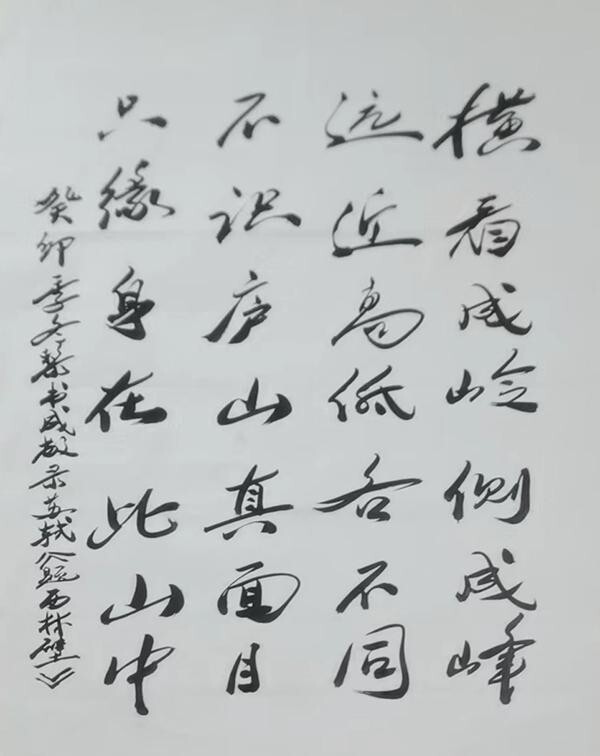 横看成岭侧成峰
远近高低各不同
不识庐山真面目
只缘身在此山中
癸卯季冬书成敬录苏轼《题西林壁》